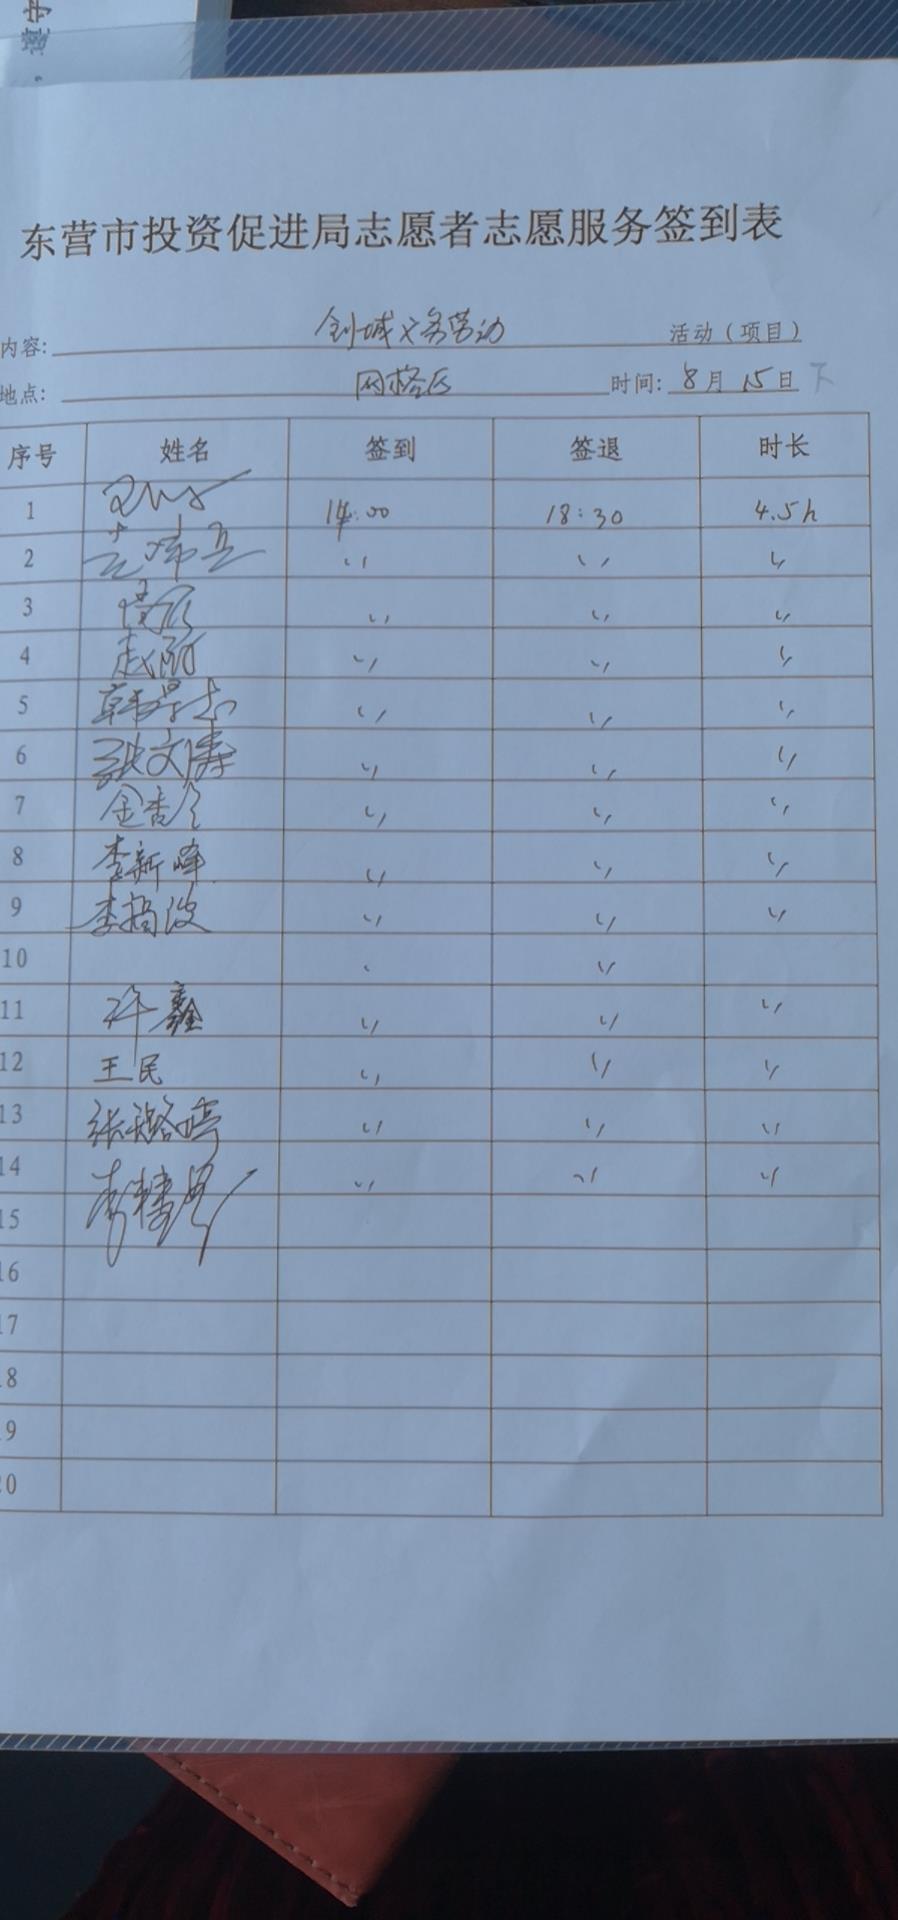 东营市投资促进局志愿者志愿服务签到表
内容: 创城义务劳动 活动（项目）
地点: 网格区 时间: 8月15日 下
序号 姓名 签到 签退 时长
1 14:00 18:30 4.5h
2 〃 〃 〃
3 〃 〃 〃
4 赵 〃 〃 〃
5 韩 〃 〃 〃
6 张文涛 〃 〃 〃
7 金 〃 〃 〃
8 李新峰 〃 〃 〃
9 李 波 〃 〃 〃
10 〃
11 许鑫 〃 〃 〃
12 王民 〃 〃 〃
13 张璐婷 〃 〃 〃
14 李 〃 〃 〃
15
16
17
18
19
20